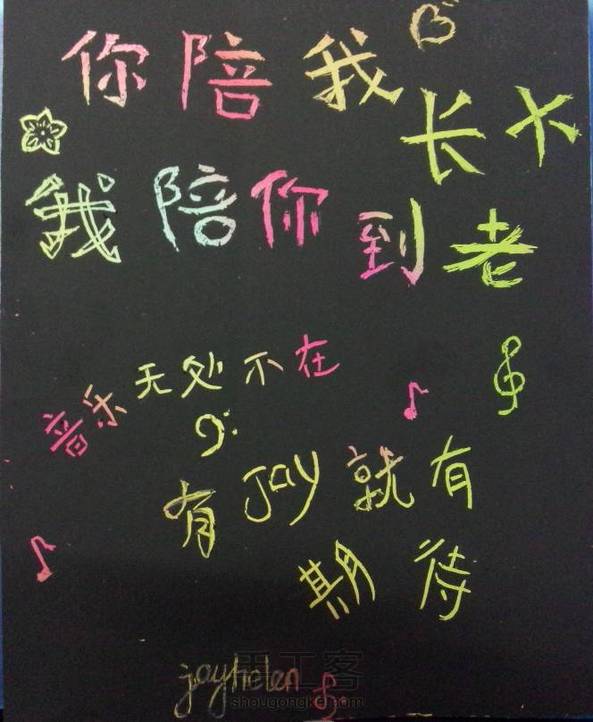 你陪我长大
我陪你到老
音乐无处不在
有Jay就有
期待
jayhelen
手工客
shougongke.com